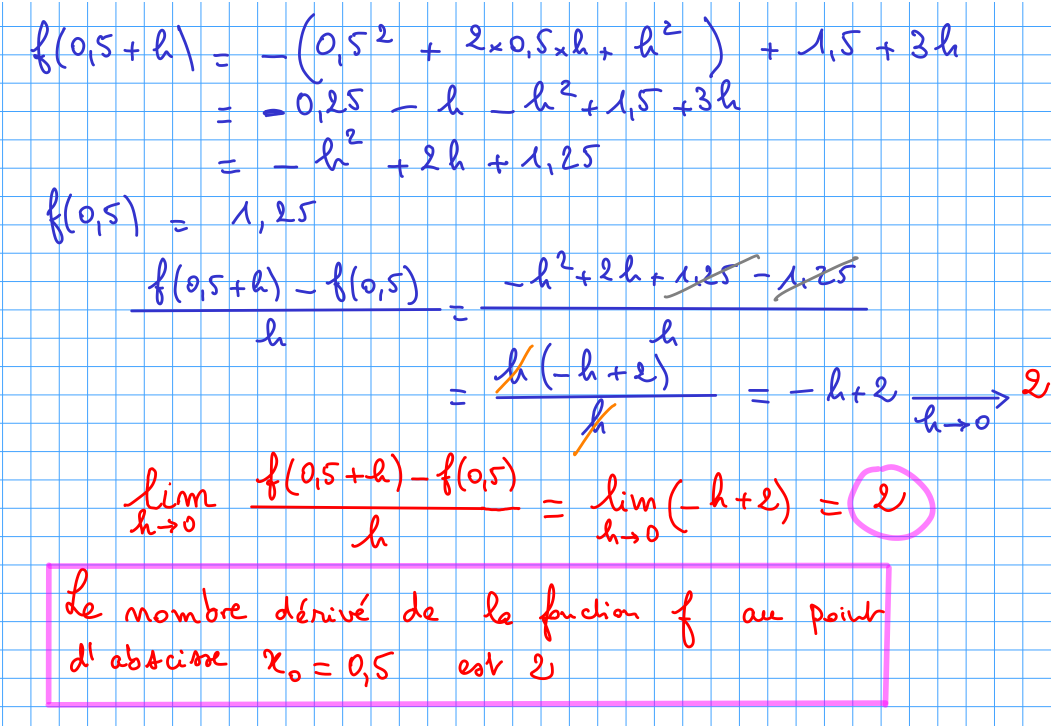 f(0,5+h) = -(0,5² + 2×0,5×h + h²) + 1,5 + 3h
= -0,25 - h - h² + 1,5 + 3h
= -h² + 2h + 1,25
f(0,5) = 1,25
(f(0,5+h) - f(0,5))/h = (-h² + 2h + 1,25 - 1,25)/h
= h(-h+2)/h = -h+2 → 2 h→0
lim h→0 (f(0,5+h) - f(0,5))/h = lim h→0 (-h+2) = 2
Le nombre dérivé de la fonction f au point
d'abscisse x₀ = 0,5 est 2